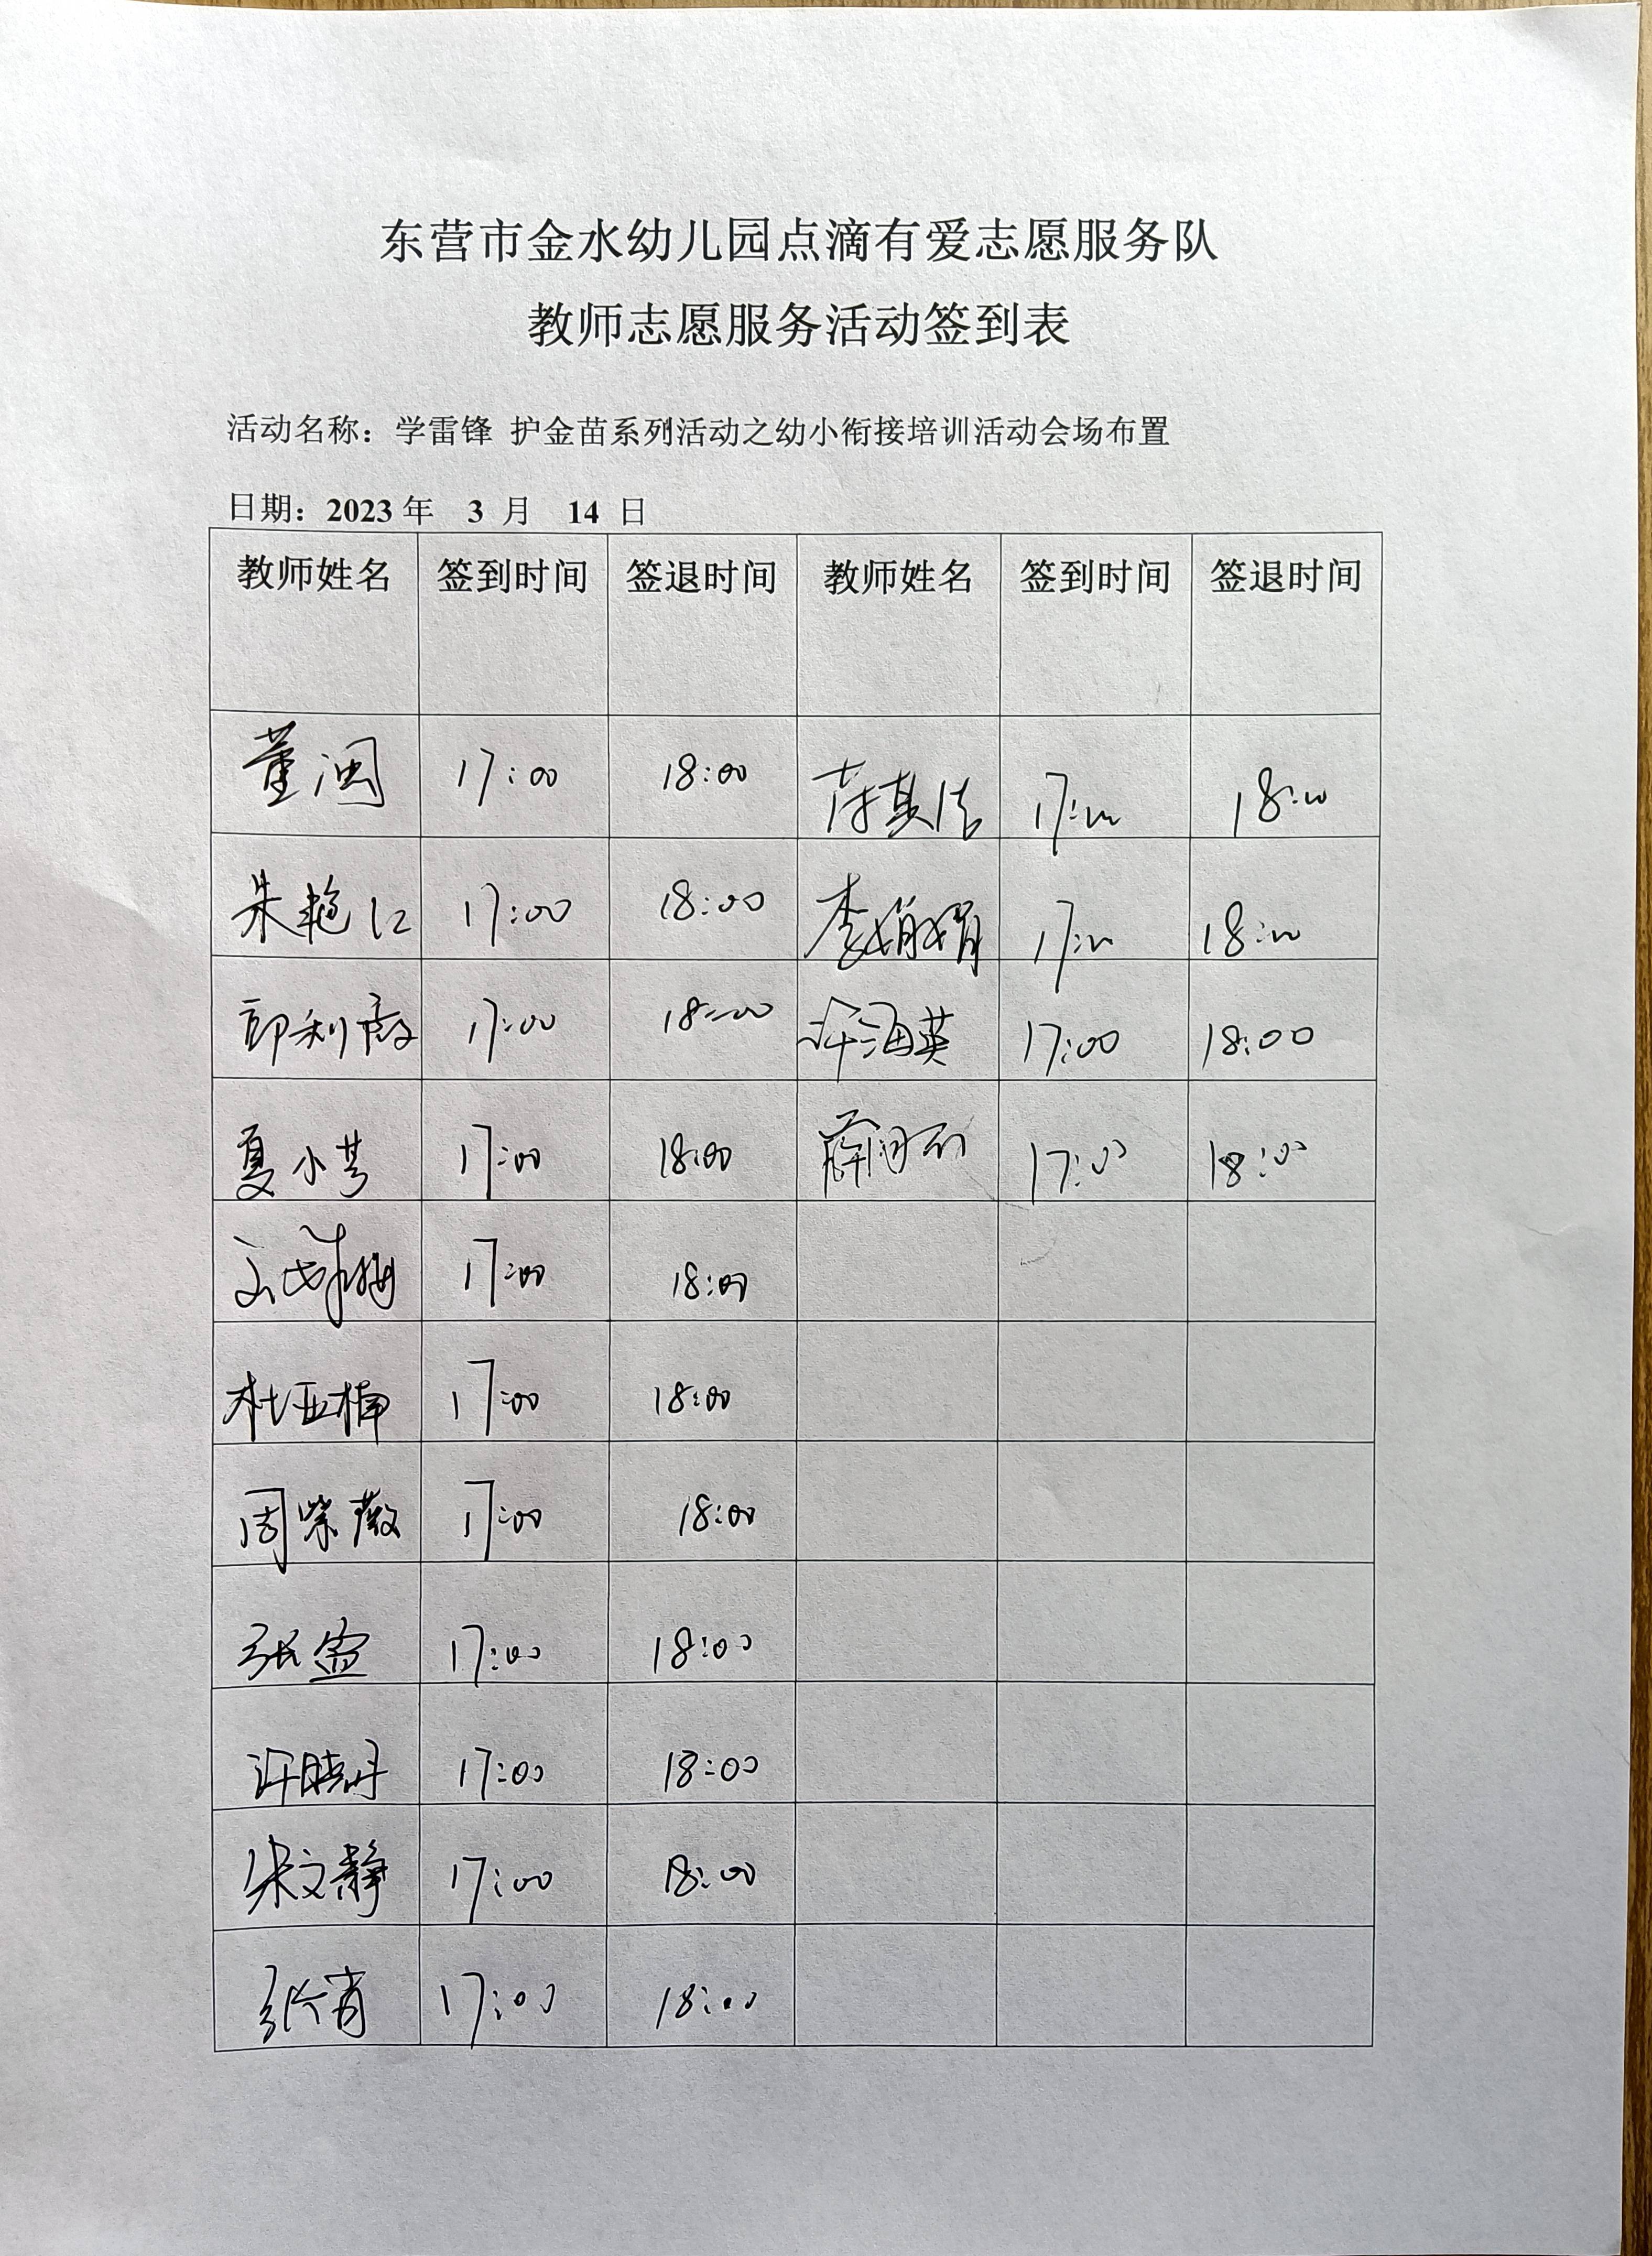 东营市金水幼儿园点滴有爱志愿服务队
教师志愿服务活动签到表
活动名称：学雷锋 护金苗系列活动之幼小衔接培训活动会场布置
日期：2023 年 3 月 14 日
教师姓名 签到时间 签退时间 教师姓名 签到时间 签退时间
董闽 17:00 18:00 17:00 18:00
朱艳红 17:00 18:00 李娟娟 17:00 18:00
郭利霞 17:00 18:00 许海英 17:00 18:00
夏小芳 17:00 18:00 薛 17:00 18:00
17:00 18:00
杜亚楠 17:00 18:00
周紫薇 17:00 18:00
张蜜 17:00 18:00
许晓丹 17:00 18:00
朱文静 17:00 18:00
张青 17:00 18:00